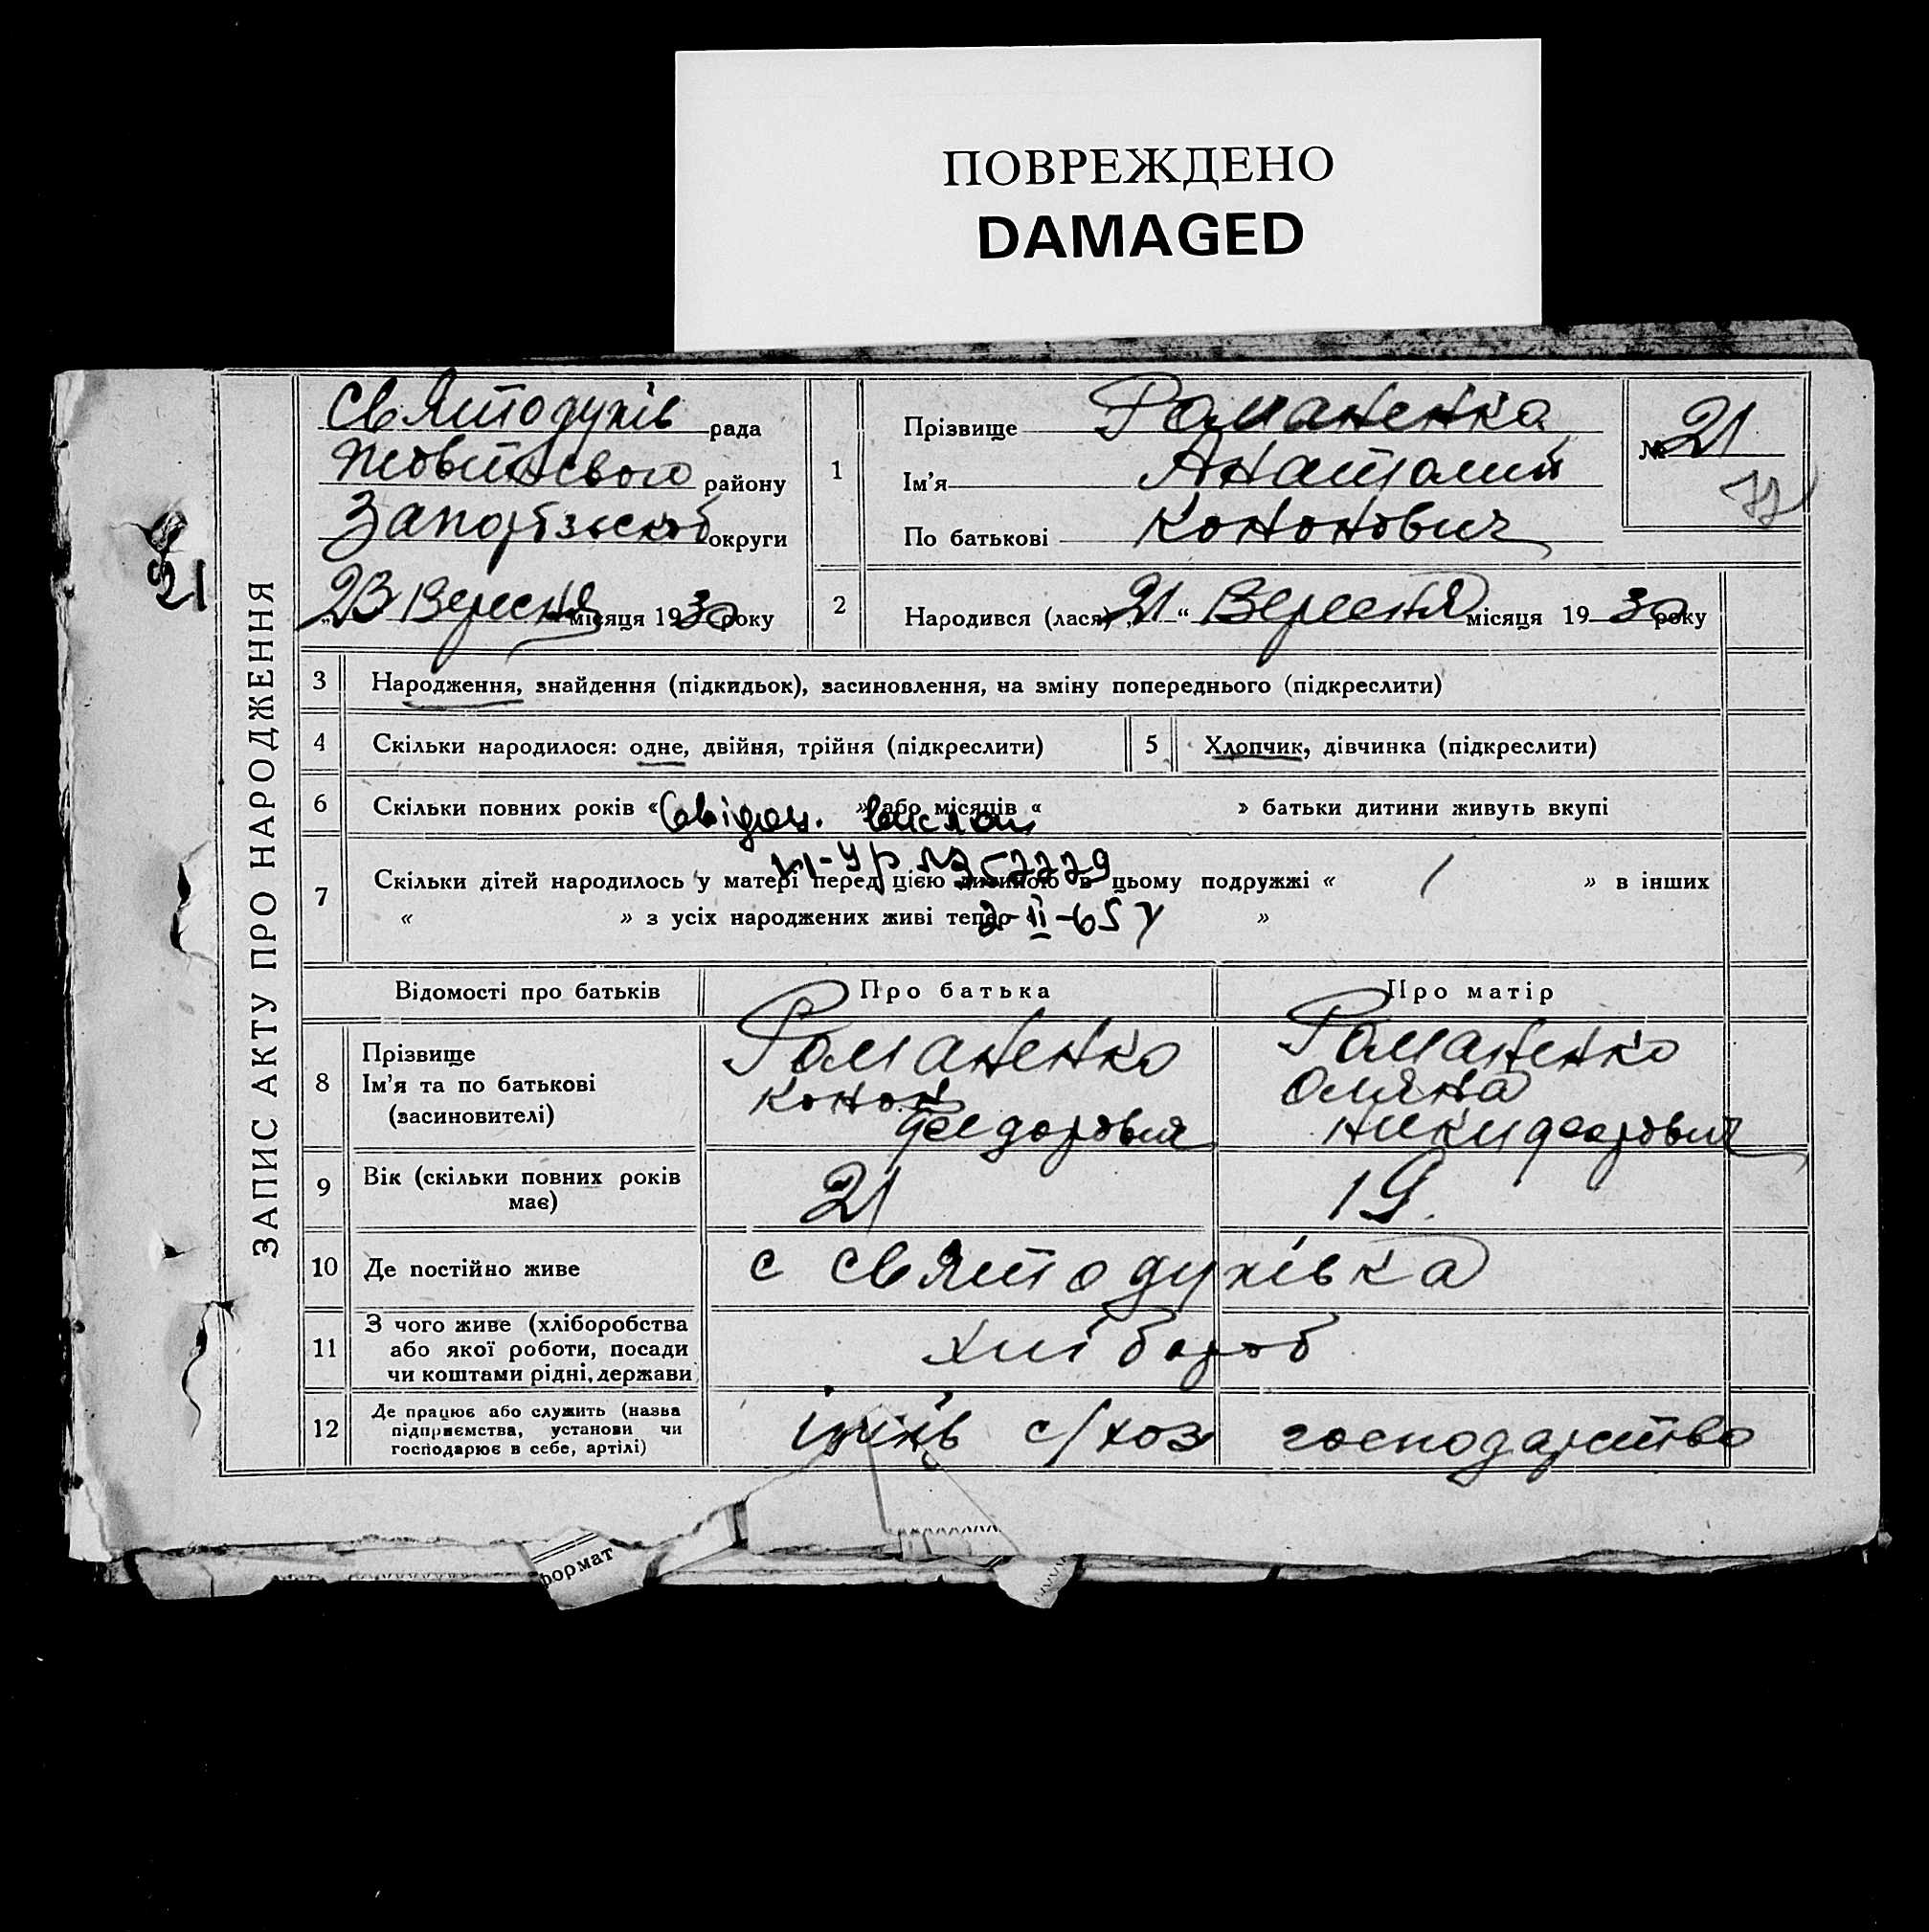 ПОВРЕЖДЕНО
DAMAGED
ЗАПИС АКТУ ПРО НАРОДЖЕННЯ
21
Святодухів рада
Жовтневого району
округи
23 Вересня місяця 1930 року
1
Прізвище Романенко
Ім’я Анатолий
По батькові Кононович
№ 21
2 Народився (лася) „21“ Вересня місяця 1930 року
3 Народження, знайдення (підкидьок), засиновлення, на зміну попереднього (підкреслити)
4 Скільки народилося: одне, двійня, трійня (підкреслити) 5 Хлопчик, дівчинка (підкреслити)
6 Скільки повних років « » або місяців « » батьки дитини живуть вкупі
Свідоц.
7 Скільки дітей народилось у матері перед цією дитиною в цьому подружжі « / » в інших
« » з усіх народжених живі тепер »
2-II-65
Відомості про батьків Про батька Про матір
8
Прізвище
Ім’я та по батькові
(засиновителі)
Романенко
Конон
Федорович
Романенко
Никифорович
9 Вік (скільки повних років має) 21 19
10 Де постійно живе с Святодухівка
11 З чого живе (хліборобства
або якої роботи, посади
чи коштами рідні, держави
12 Де працює або служить (назва
підприємства, установи чи
господарює в себе, артілі)
с/хоз господарство
формат